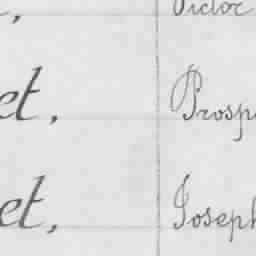 , Victor
et, Prosp
et, Joseph